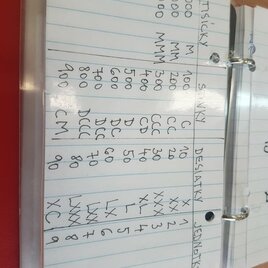 TISÍCKY STOVKY DESIATKY
000 M 100 C 10 X 1
000 MM 200 CC 20 XX 2
000 MMM 300 CCC 30 XXX 3
400 CD 40 XL 4
500 D 50 L 5
600 DC 60 LX 6
700 DCC 70 LXX 7
800 DCCC 80 LXXX 8
900 CM 90 XC 9